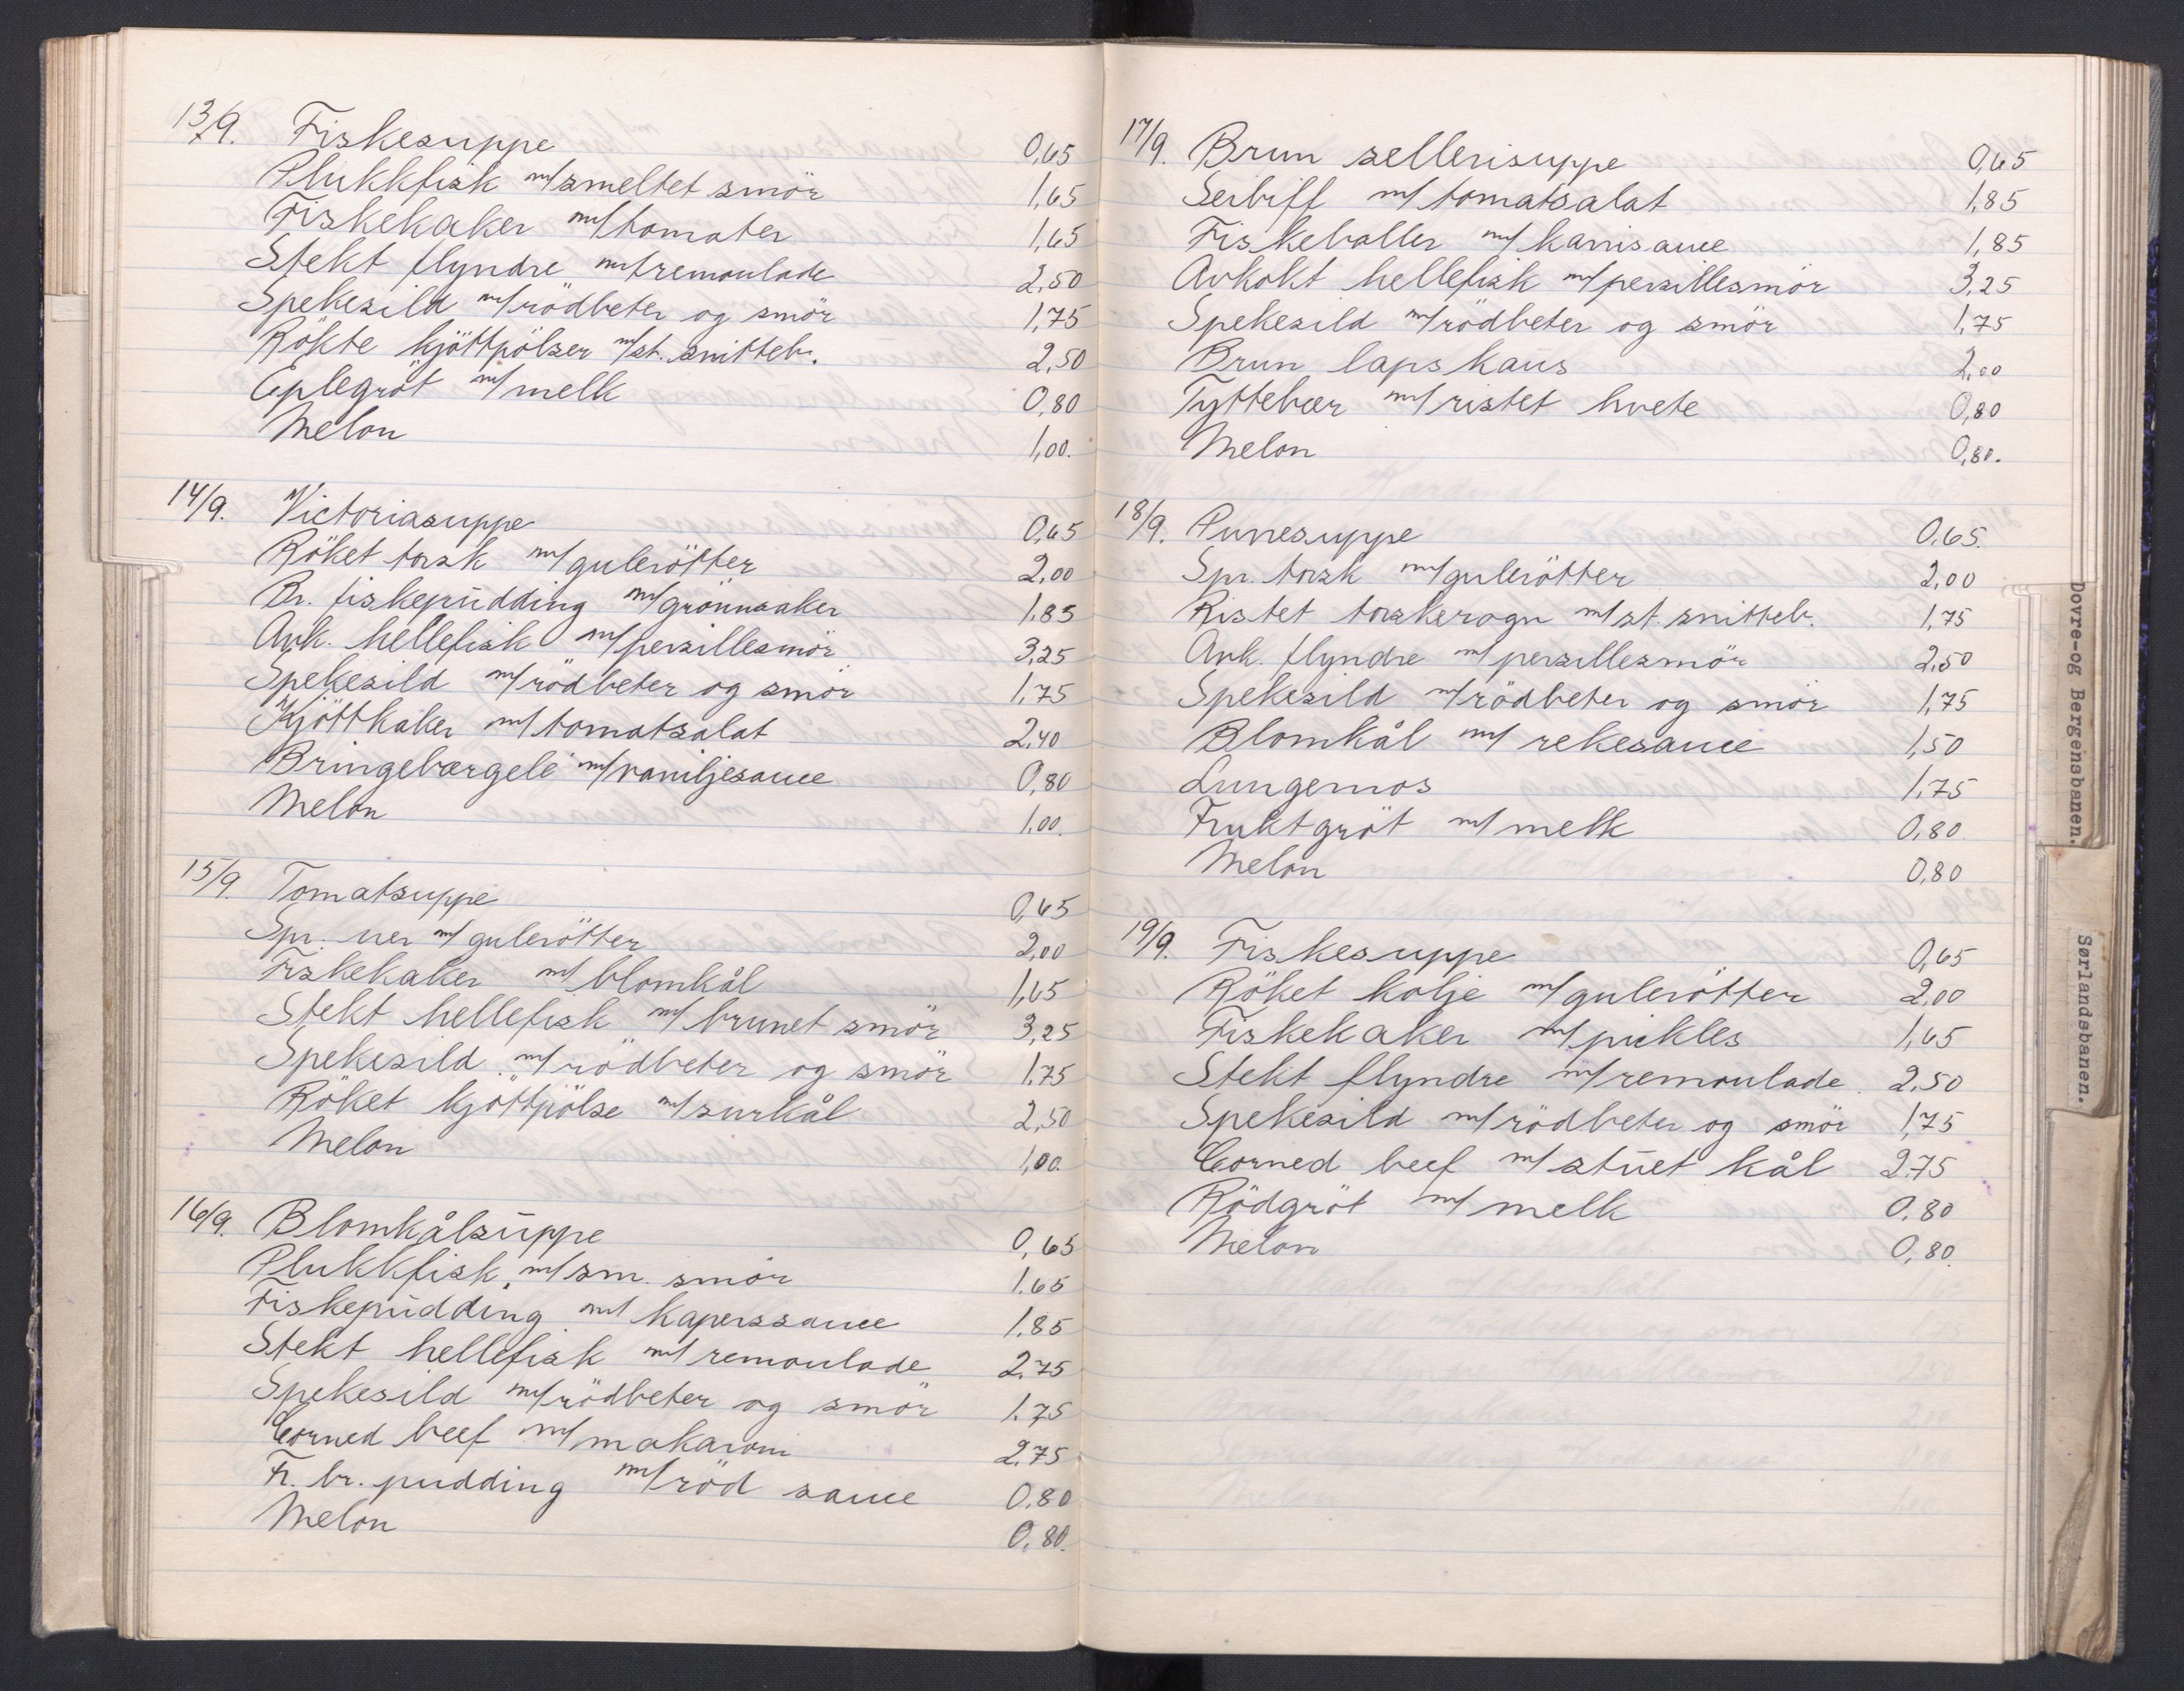 13/9. Fiskesuppe 0,65
Plukkfisk m/smeltet smör 1,65
Fiskekaker m/tomater 1,65
Stekt flyndre m/remoulade 2,50
Spekesild m/rödbeter og smör 1,75
Rökte kjöttpölser m/st. snitteb. 2,50
Eplegröt m/melk 0,80
Melon 1,00.
14/9. Victoriasuppe 0,65
Röket torsk m/gulerötter 2,00
Br. fiskepudding m/grönnsaker 1.85
Avk. hellefisk m/persillesmör 3,25
Spekesild m/rödbeter og smör 1,75
Kjöttkaker m/tomatsalat 2,40
Bringebærgelé m/vaniljesauce 0,80
Melon 1,00.
15/9. Tomatsuppe 0,65
Spr. uer m/gulerötter 2,00
Fiskekaker m/blomkål 1,65
Stekt hellefisk m/brunet smör 3,25
Spekesild m/rödbeter og smör 1.75
Röket kjöttpölse m/surkål 2,50
Melon 1,00.
16/9. Blomkålsuppe 0,65
Plukkfisk m/sm. smör 1.65
Fiskepudding m/kaperssauce 1.85
Stekt hellefisk m/remoulade 2.75
Spekesild m/rödbeter og smör 1.75
Corned beef m/makaroni 2.75
Fr. br. pudding m/röd sauce 0.80
Melon 0.80.
17/9. Brun sellerisuppe 0,65
Seibiff m/tomatsalat 1,85
Fiskeboller m/karrisauce 1,85
Avkokt hellefisk m/persillesmör 3,25
Spekesild m/rödbeter og smör 1,75
Brun lapskaus 2,00
Tyttebær m/ristet hvete 0,80
Melon 0,80.
18/9. Purresuppe 0.65.
Spr. torsk m/gulerötter 2,00
Ristet torskerogn m/st. snitteb. 1,75
Avk. flyndre m/persillesmör 2,50
Spekesild m/rödbeter og smör 1,75
Blomkål m/rekesauce 1,50
Lungemos 1,75
Fruktgröt m/melk 0,80
Melon 0,80
19/9. Fiskesuppe 0,65
Röket kolje m/gulerötter 2,00
Fiskekaker m/pickles 1,65
Stekt flyndre m/remoulade 2,50
Spekesild m/rödbeter og smör 1,75
Corned beef m/stuet kål 2.75
Rödgröt m/melk 0,80
Melon 0,80.
Dovre-og Bergensbanen.
Sørlandsbanen.